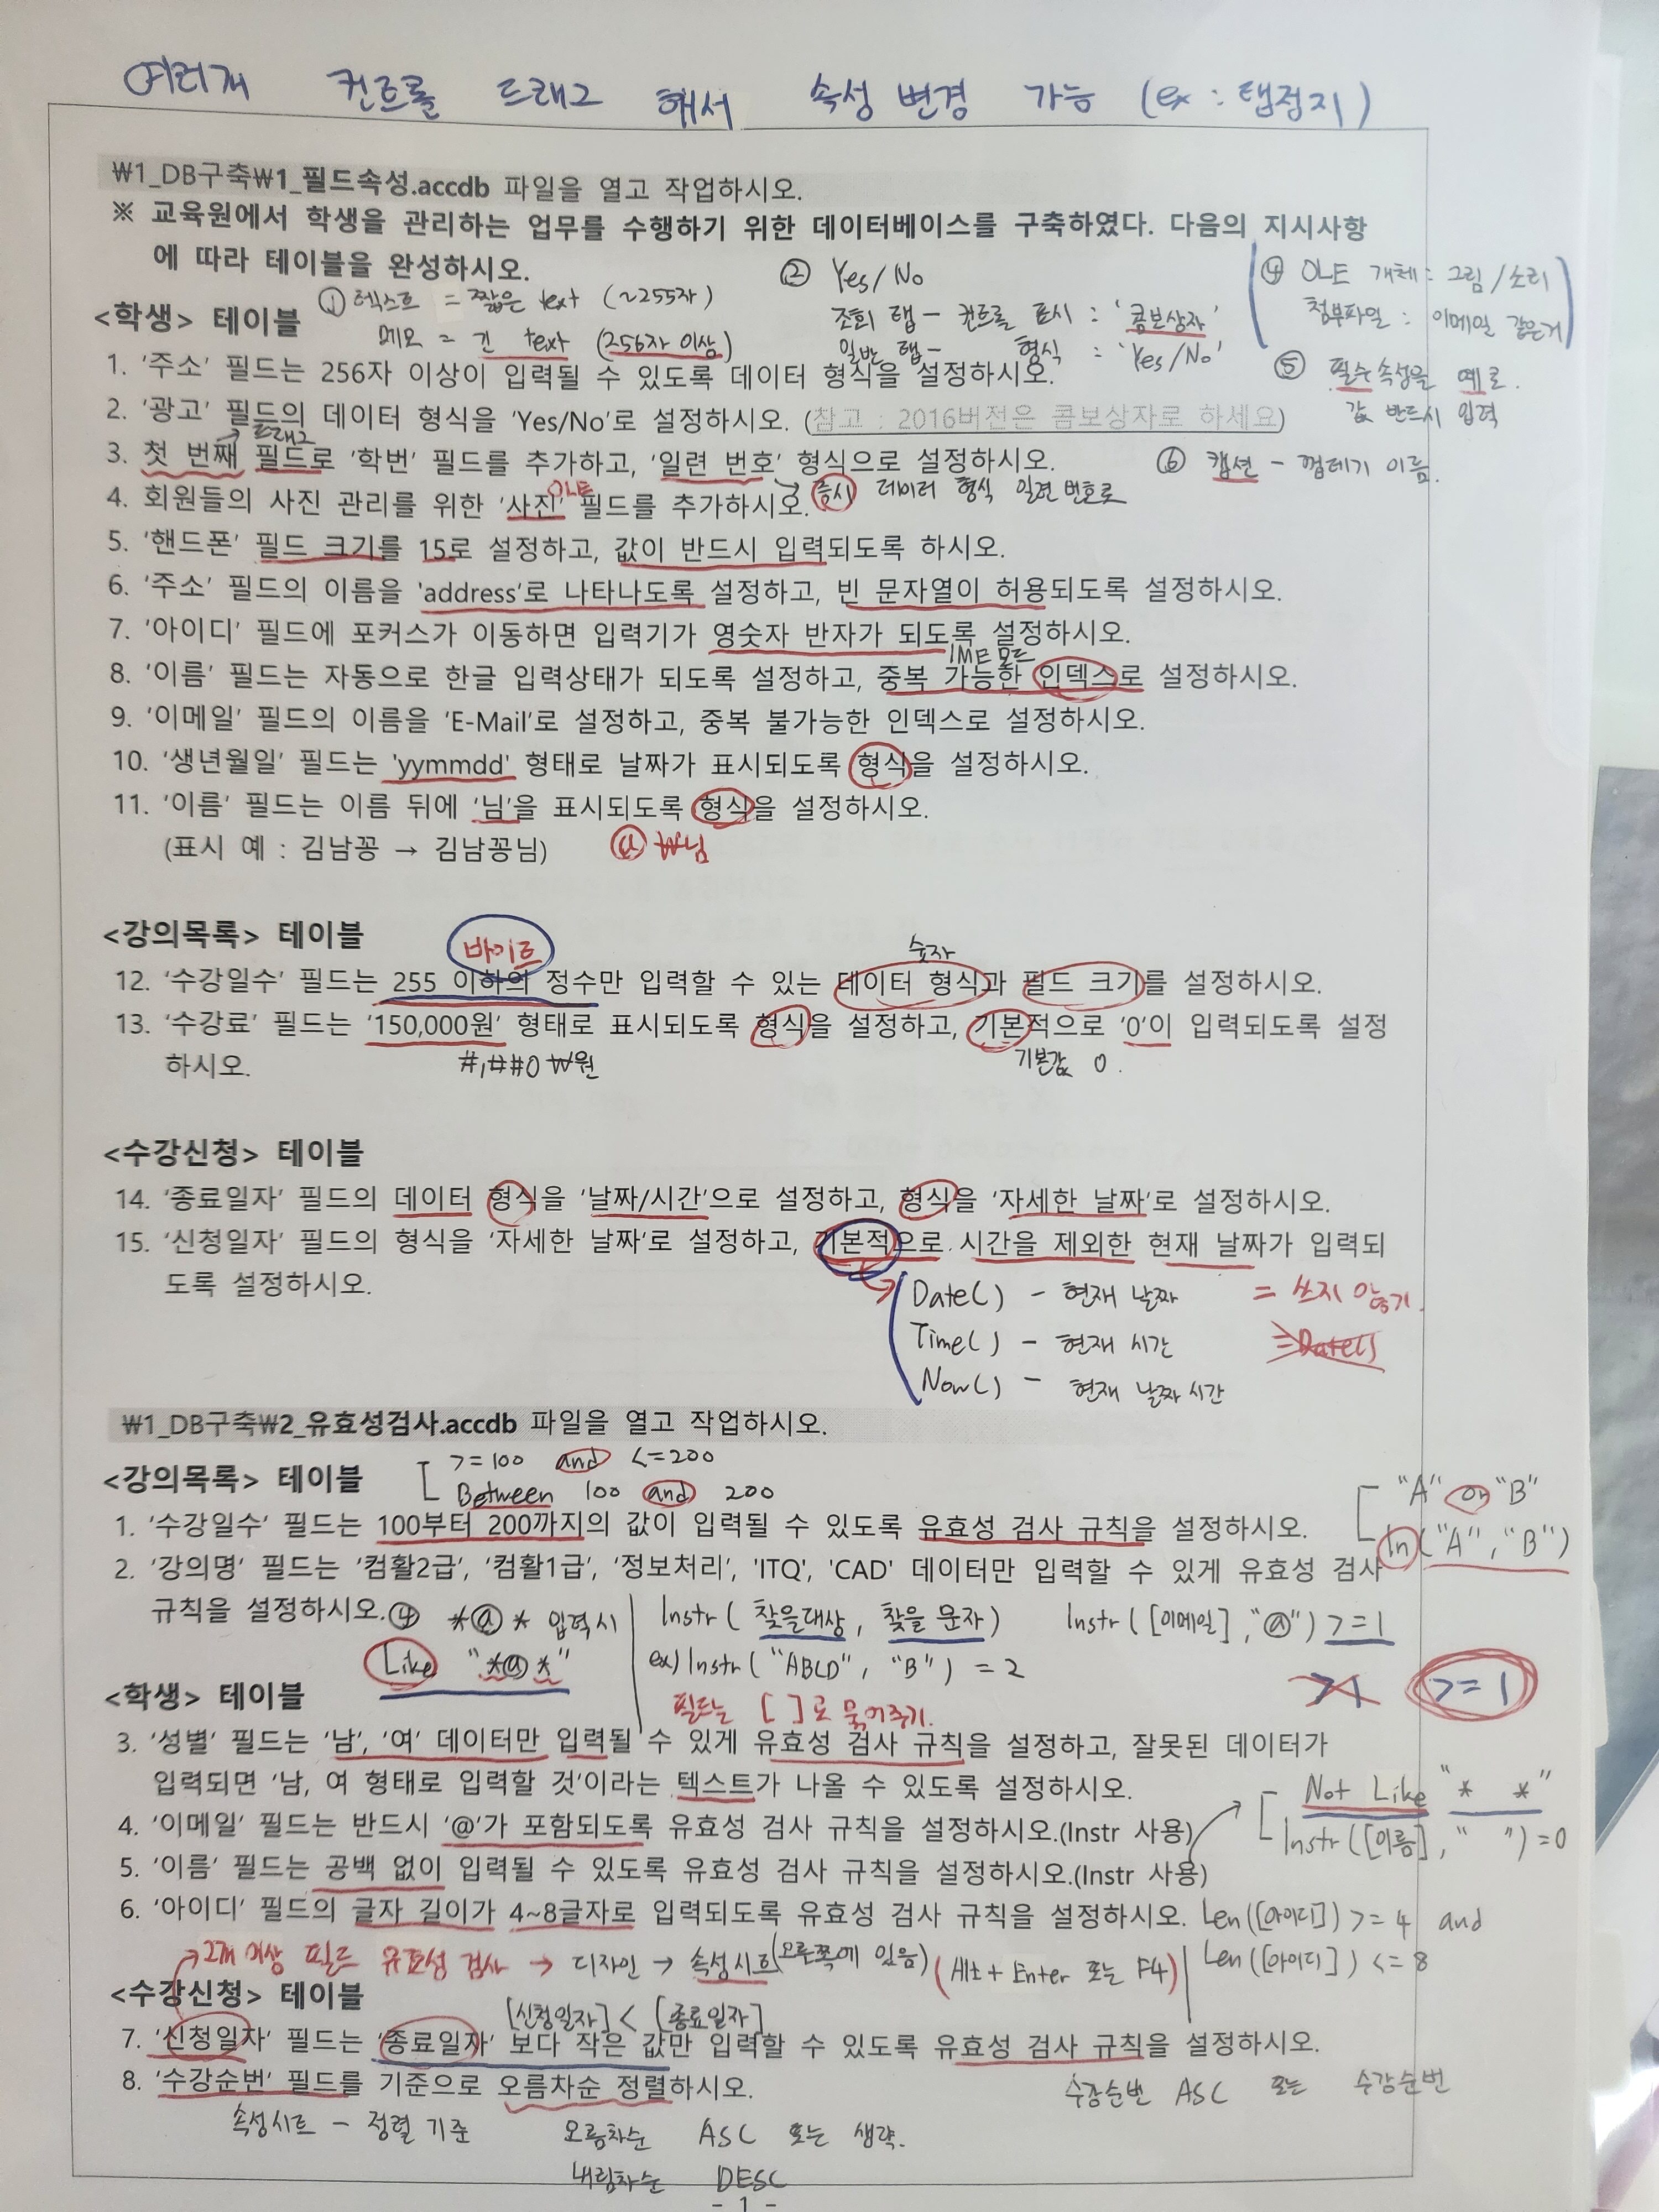 여러개 컨트롤 드래그 해서 속성 변경 가능 (ex : 탭정지)
₩1_DB구축₩1_필드속성.accdb 파일을 열고 작업하시오.
※ 교육원에서 학생을 관리하는 업무를 수행하기 위한 데이터베이스를 구축하였다. 다음의 지시사항
에 따라 테이블을 완성하시오.
② Yes/No
조회 탭 - 컨트롤 표시 : '콤보상자'
일반 탭 - 형식 : 'Yes/No'
④ OLE 개체 : 그림/소리
첨부파일 : 이메일 같은거
① 텍스트 = 짧은 text (~255자)
메모 = 긴 text (256자 이상)
<학생> 테이블
1. '주소' 필드는 256자 이상이 입력될 수 있도록 데이터 형식을 설정하시오.
⑤ 필수 속성을 예로.
값 반드시 입력
2. '광고' 필드의 데이터 형식을 'Yes/No'로 설정하시오. (참고 : 2016버전은 콤보상자로 하세요)
드래그
3. 첫 번째 필드로 '학번' 필드를 추가하고, '일련 번호' 형식으로 설정하시오.
⑥ 캡션 - 껍데기 이름.
OLE
4. 회원들의 사진 관리를 위한 '사진' 필드를 추가하시오.
데이터 형식 일련번호로
5. '핸드폰' 필드 크기를 15로 설정하고, 값이 반드시 입력되도록 하시오.
6. '주소' 필드의 이름을 'address'로 나타나도록 설정하고, 빈 문자열이 허용되도록 설정하시오.
7. '아이디' 필드에 포커스가 이동하면 입력기가 영숫자 반자가 되도록 설정하시오.
IME 모드
8. '이름' 필드는 자동으로 한글 입력상태가 되도록 설정하고, 중복 가능한 인덱스로 설정하시오.
9. '이메일' 필드의 이름을 'E-Mail'로 설정하고, 중복 불가능한 인덱스로 설정하시오.
10. '생년월일' 필드는 'yymmdd' 형태로 날짜가 표시되도록 형식을 설정하시오.
11. '이름' 필드는 이름 뒤에 '님'을 표시되도록 형식을 설정하시오.
(표시 예 : 김남꽁 → 김남꽁님)
@ ₩님
<강의목록> 테이블
바이트
숫자
12. '수강일수' 필드는 255 이하의 정수만 입력할 수 있는 데이터 형식과 필드 크기를 설정하시오.
13. '수강료' 필드는 '150,000원' 형태로 표시되도록 형식을 설정하고, 기본적으로 '0'이 입력되도록 설정
하시오.
#,##0₩원
기본값 0.
<수강신청> 테이블
14. '종료일자' 필드의 데이터 형식을 '날짜/시간'으로 설정하고, 형식을 '자세한 날짜'로 설정하시오.
15. '신청일자' 필드의 형식을 '자세한 날짜'로 설정하고, 기본적으로 시간을 제외한 현재 날짜가 입력되
도록 설정하시오.
Date() - 현재 날짜
= 쓰지 않기.
Time() - 현재 시간
=Date()
Now() - 현재 날짜시간
₩1_DB구축₩2_유효성검사.accdb 파일을 열고 작업하시오.
>=100 and <=200
Between 100 and 200
<강의목록> 테이블
"A" or "B"
In("A","B")
1. '수강일수' 필드는 100부터 200까지의 값이 입력될 수 있도록 유효성 검사 규칙을 설정하시오.
2. '강의명' 필드는 '컴활2급', '컴활1급', '정보처리', 'ITQ', 'CAD' 데이터만 입력할 수 있게 유효성 검사
규칙을 설정하시오.
④ *@* 입력시
Like "*@*"
Instr( 찾을대상, 찾을 문자)
ex) Instr("ABCD", "B") = 2
필드는 [ ]로 묶어주기.
Instr([이메일],"@")>=1
>1
>=1
<학생> 테이블
3. '성별' 필드는 '남', '여' 데이터만 입력될 수 있게 유효성 검사 규칙을 설정하고, 잘못된 데이터가
입력되면 '남, 여 형태로 입력할 것'이라는 텍스트가 나올 수 있도록 설정하시오.
Not Like "* *"
Instr([이름]," ")=0
4. '이메일' 필드는 반드시 '@'가 포함되도록 유효성 검사 규칙을 설정하시오.(Instr 사용)
5. '이름' 필드는 공백 없이 입력될 수 있도록 유효성 검사 규칙을 설정하시오.(Instr 사용)
6. '아이디' 필드의 글자 길이가 4~8글자로 입력되도록 유효성 검사 규칙을 설정하시오.
Len([아이디])>=4 and
Len([아이디])<=8
2개 이상 필드 유효성 검사 → 디자인 → 속성시트(오른쪽에 있음) (Alt + Enter 또는 F4)
<수강신청> 테이블
[신청일자] < [종료일자]
7. '신청일자' 필드는 '종료일자' 보다 작은 값만 입력할 수 있도록 유효성 검사 규칙을 설정하시오.
8. '수강순번' 필드를 기준으로 오름차순 정렬하시오.
수강순번 ASC 또는 수강순번
속성시트 - 정렬 기준
오름차순 ASC 또는 생략.
내림차순 DESC
- 1 -